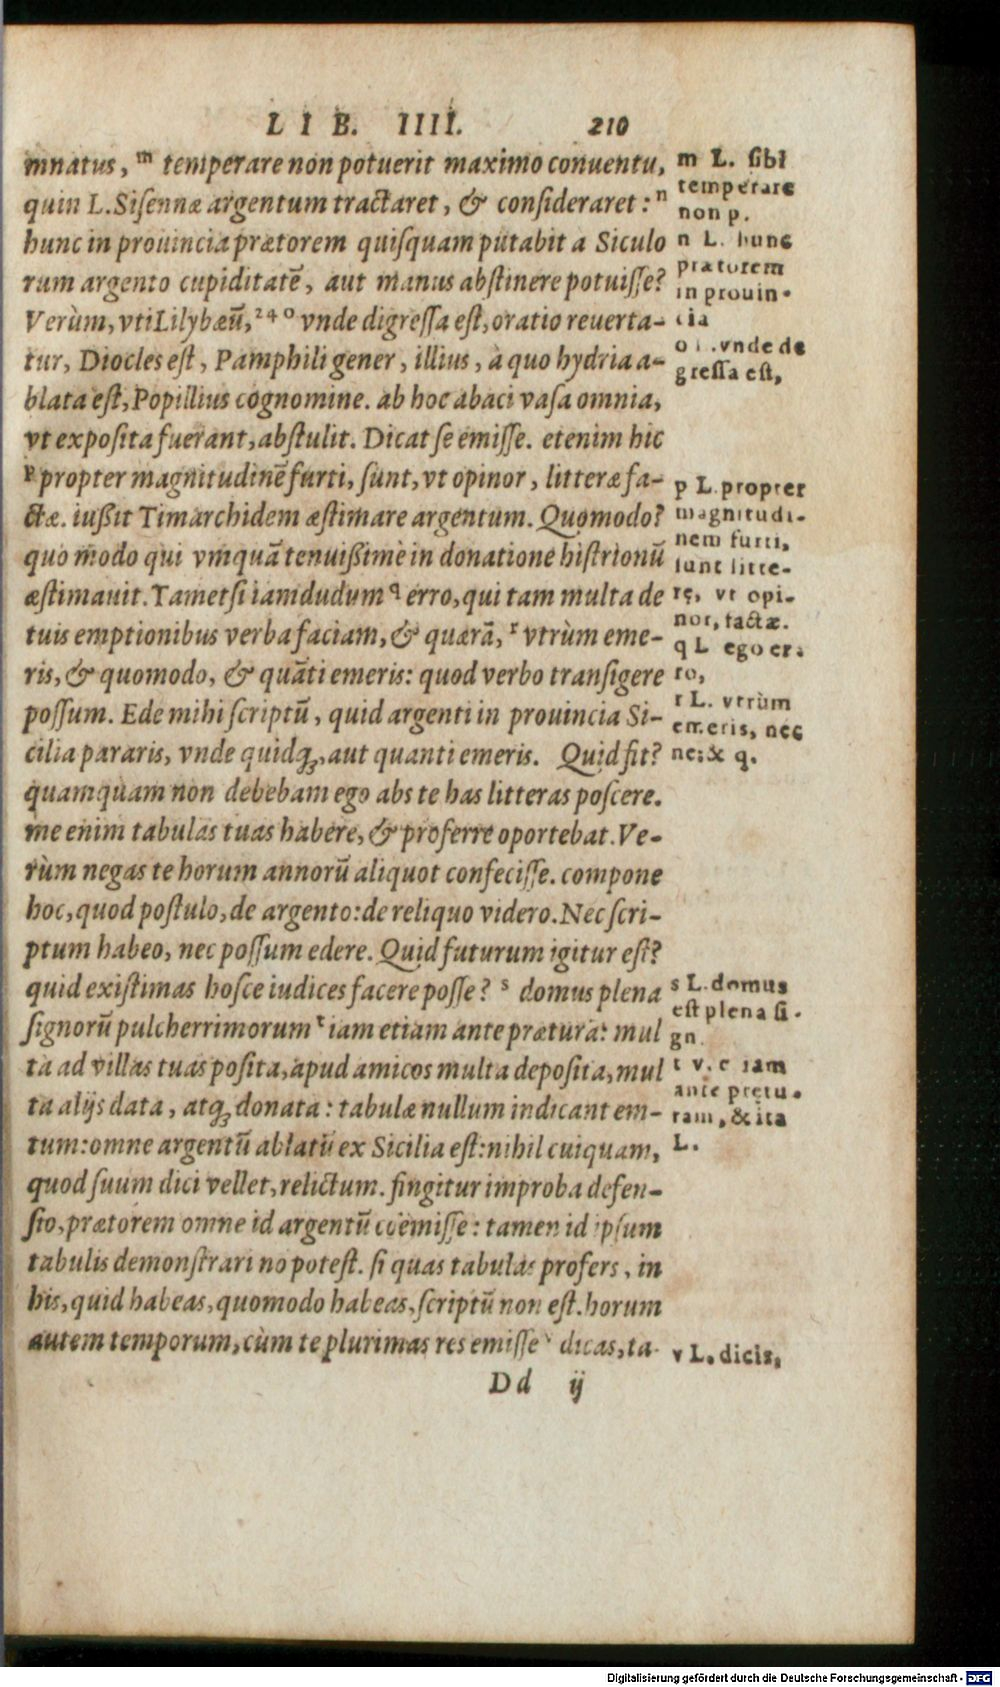 LIB. IIII. 210
mnatus, ᵐ temperare non potuerit maximo conuentu,
quin L. Sisennæ argentum tractaret, & consideraret: ⁿ
hunc in prouincia prætorem quisquam putabit a Siculo
rum argento cupiditatẽ, aut manus abstinere potuisse?
Verùm, vti Lilybæũ, ²⁴⁰ vnde digressa est, oratio reuerta-
tur, Diocles est, Pamphili gener, illius, à quo hydria a-
blata est, Popillius cognomine. ab hoc abaci vasa omnia,
vt exposita fuerant, abstulit. Dicat se emisse. etenim hic
ᵖ propter magnitudinẽ furti, sunt, vt opinor, litteræ fa-
ctæ. iußit Timarchidem æstimare argentum. Quomodo?
quo modo qui vmquã tenuißimè in donatione histrionũ
æstimauit. Tametsi iamdudum ᑫ erro, qui tam multa de
tuis emptionibus verba faciam, & quærã, ʳ vtrùm eme-
ris, & quomodo, & quãti emeris: quod verbo transigere
possum. Ede mihi scriptũ, quid argenti in prouincia Si-
cilia pararis, vnde quidq́;, aut quanti emeris. Quid fit?
quamquam non debebam ego abs te has litteras poscere.
me enim tabulas tuas habere, & proferre oportebat. Ve-
rùm negas te horum annorũ aliquot confecisse. compone
hoc, quod postulo, de argento: de reliquo videro. Nec scri-
ptum habeo, nec possum edere. Quid futurum igitur est?
quid existimas hosce iudices facere posse? ˢ domus plena
signorũ pulcherrimorum ᵗ iam etiam ante præturã: mul
ta ad villas tuas posita, apud amicos multa deposita, mul
ta alijs data, atq́; donata: tabulæ nullum indicant em-
tum: omne argentũ ablatũ ex Sicilia est: nihil cuiquam,
quod suum dici vellet, relictum. fingitur improba defen-
sio, prætorem omne id argentũ coëmisse: tamen id ipsum
tabulis demonstrari nõ potest. si quas tabulas profers, in
his, quid habeas, quomodo habeas, scriptũ non est. horum
autem temporum, cùm te plurimas res emisse ᵛ dicas, ta-
Dd ij
m L. sibi
temperare
non p.
n L. hunc
prætorem
in prouin-
cia
o L. vnde de
gressa est,
p L. propter
magnitudi-
nem furti,
sunt litte-
rę, vt opi-
nor, factæ.
q L ego er-
ro,
r L. vtrùm
emeris, nec
ne: & q.
s L. domus
est plena si-
gn.
t v. c iam
ante prętu-
ram, & ita
L.
v L. dicis,
Digitalisierung gefördert durch die Deutsche Forschungsgemeinschaft - DFG